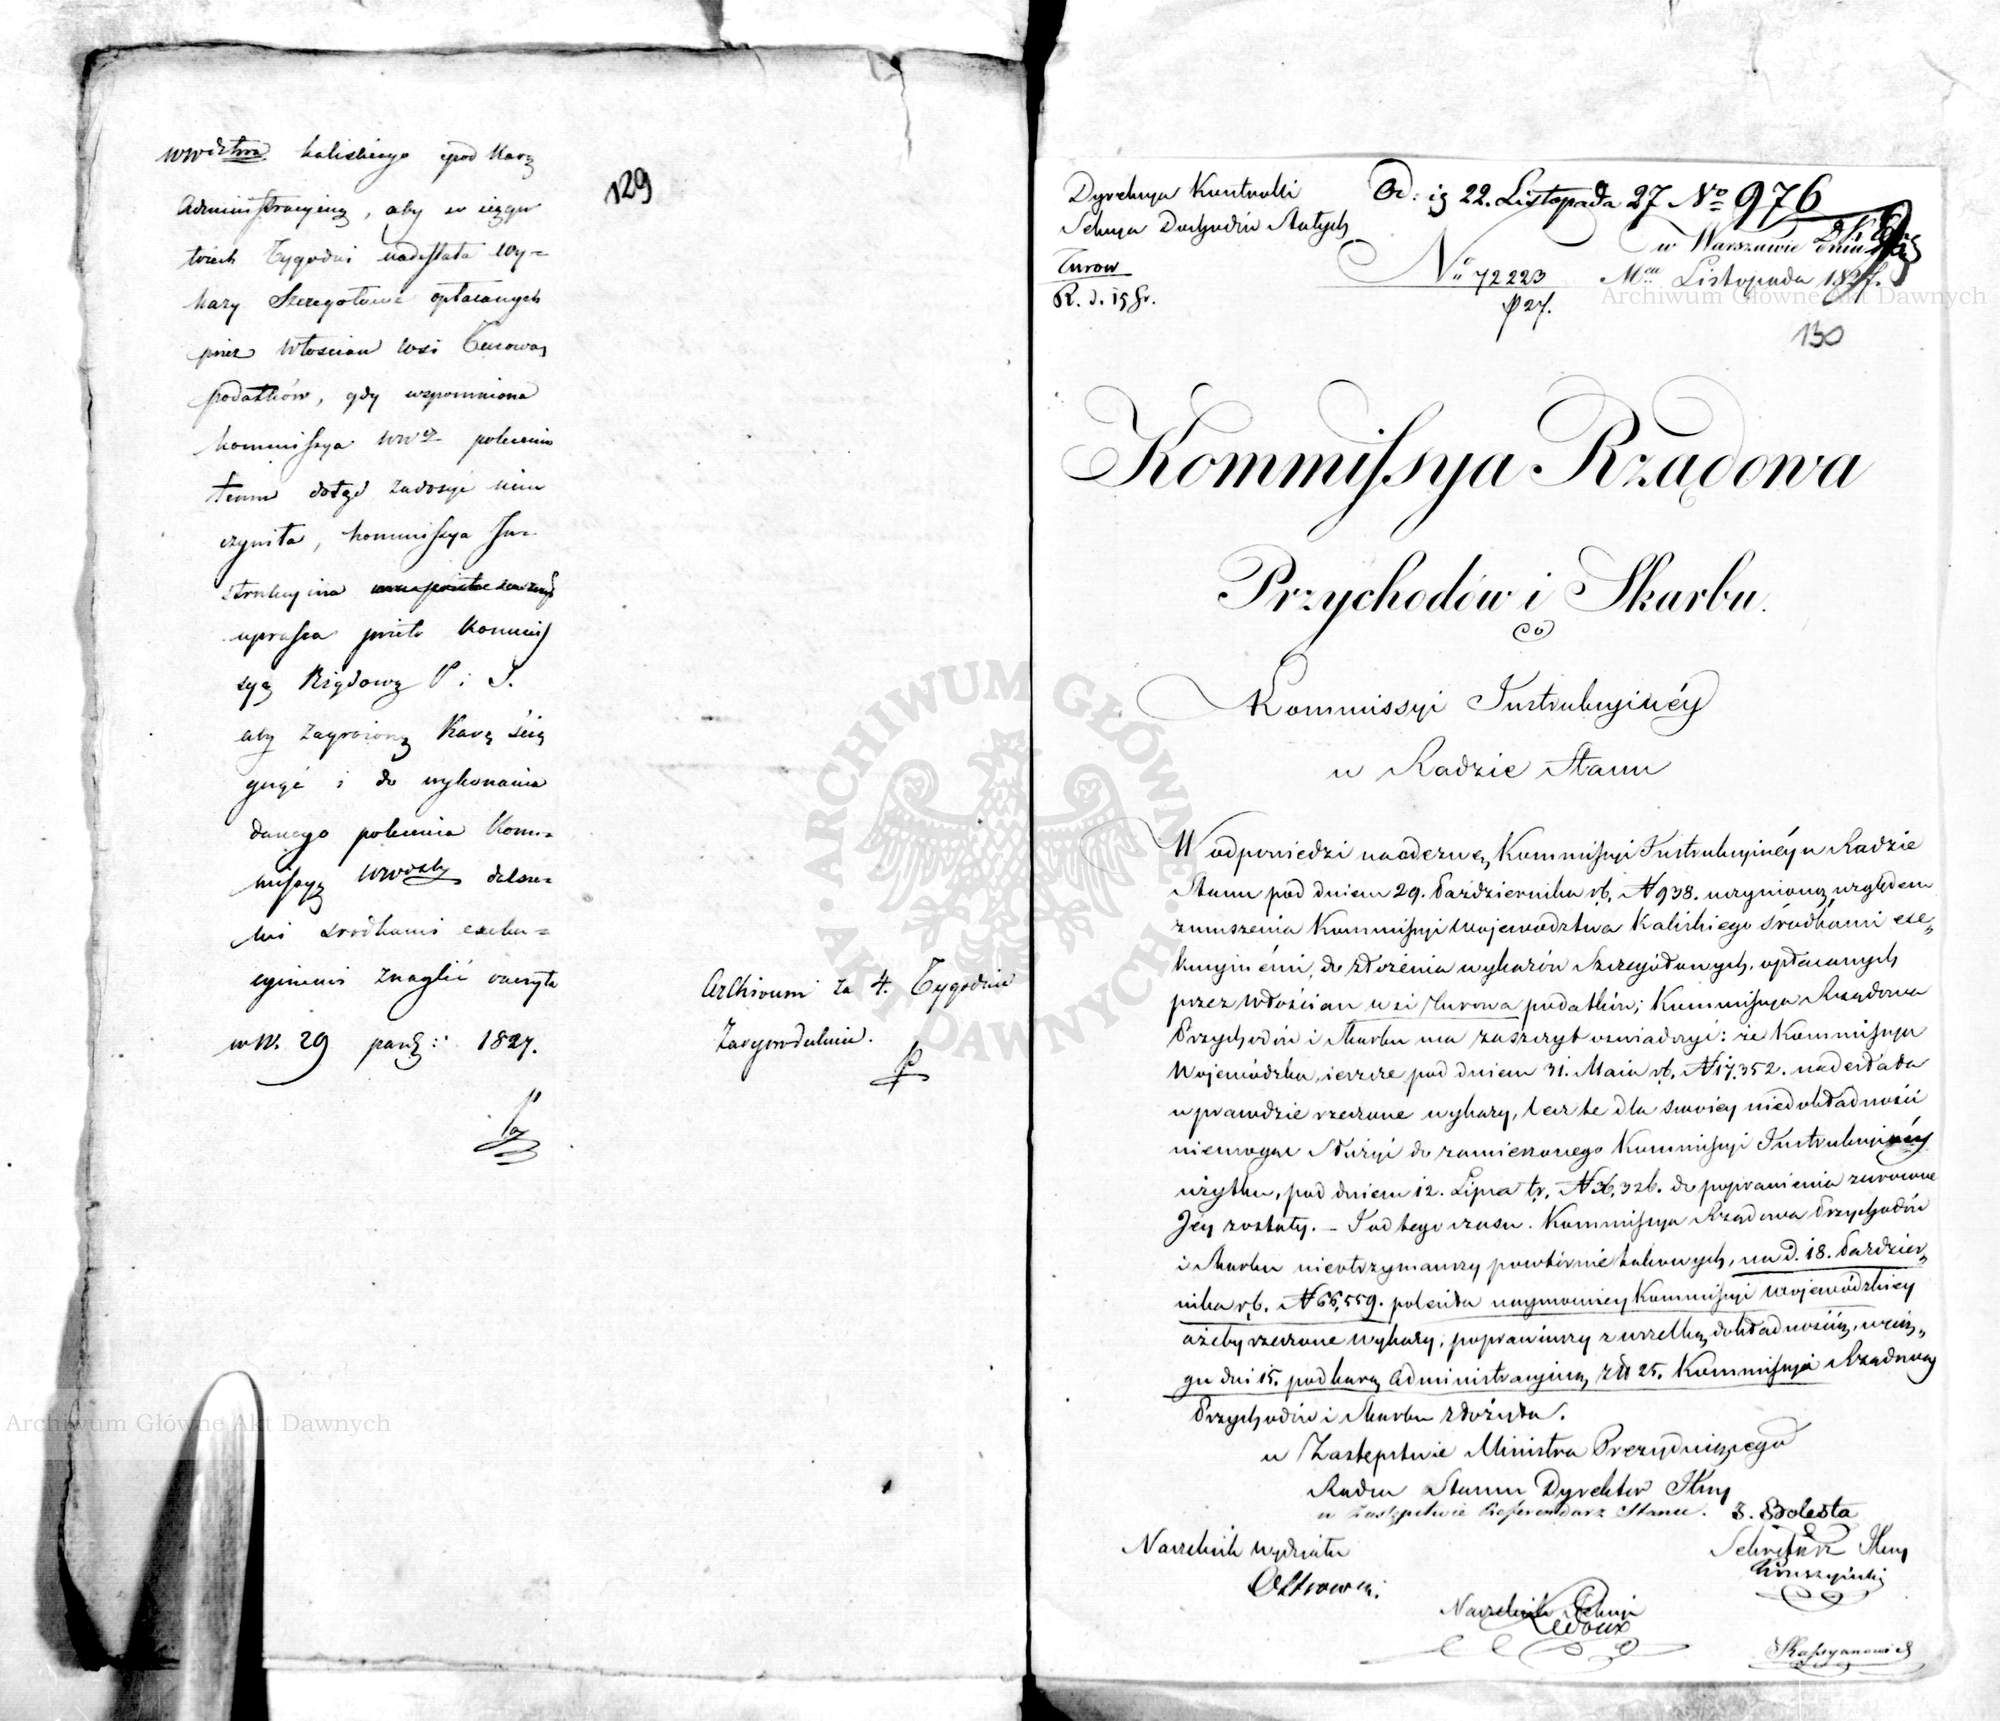 wwdztwa kaliskiego pod karą
Administracyjną, aby w ciągu
trzech Tygodni nadesłała wy=
kazy Szczegołowe opłacanych
przez Włościan wsi Turowa
podatków, gdy wspomniona
kommissya polecenia
temu dotąd zadosyć nieu
czyniła, kommissya In-
strukcyina
uprasza przeto Kommis
syą Rządową P. i S.
aby zagrożoną Karę ścią
gnąć i do wykonania
danego polecenia Kom=
missyą dalsze=
mi srodkami exeku=
cyinemi znaglić raczyła
w W. 29 paźd: 1827.
129
Archivum za 4. Tygodnie
Zareprodukuie.
Dyrekcya Kontrolli
Sekcya Dochodów Stałych
Turow
R. d. 15 Gr.
Od: ig 22. Listopada 27 No 976
w Warszawie dnia
No 72223
Mca Listopada 1827.
p 27.
130
Kommissya Rządowa
Przychodów i Skarbu.
Kommissyi Instrukcyinéy
w Radzie Stanu
W odpowiedzi na odezwę Kommissyi Instrukcyinéy w Radzie
Stanu pod dniem 29. Października rb. N 938. uczynioną względem
zmuszenia Kommissyi Województwa Kaliskiego środkami exe-
kucyinemi, do złożenia wykazów Szczegółowych, opłacanych
przez Włościan wsi Turowa podatków; Kommissya Rządowa
Przychodów i Skarbu ma zaszczyt oświadczyć: że Kommissya
Wojewódzka, ieszcze pod dniem 31. Maia rb. N 17,352. nadesłała
wprawdzie rzeczone wykazy, lecz te dla swoiéy niedokładności
niemogąc służyć do zamierzonego Kommissyi Instrukcyinéy
użytku, pod dniem 12. Lipca tr. N 36,326. do poprawienia zwrócone
Jéy zostały. – Lod tego czasu. Kommissya Rządowa Przychodów
i Skarbu nieotrzymawszy powtórnie takowych, na d. 18. Paździer-
nika rb. N 66,559. poleciła Kommissyi Wojewódzkiéy
ażeby rzeczone wykazy, poprawiwszy z wszelką dokładnością, wcią-
gu dni 15. pod karą administracyiną zł 25. Kommissyi Rządowéy
Przychodów i Skarbu złożyła.
w Zastępstwie Ministra Prezyduiącego
Radca Stanu Dyrektor Jlny
w Zastępstwie Referendarz Stanu. J. Bolesta
Naczelnik Wydziału
Sekretarz Jlny
Kruszyński
Naczelnik Sekcyi
Ledoux
Archiwum Główne Akt Dawnych
Archiwum Główne Akt Dawnych
ARCHIWUM GŁÓWNE AKT DAWNYCH